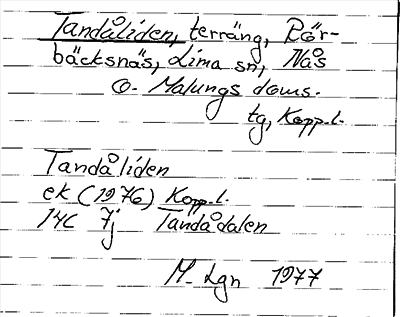 Tandåliden, terräng, Rör-
bäcksnäs, Lima sn, Nås
o. Malungs doms.
tg, Kopp.l.
Tandåliden
ek (1976) Kopp.l.
14C 7j Tandådalen
M. Lgn 1977